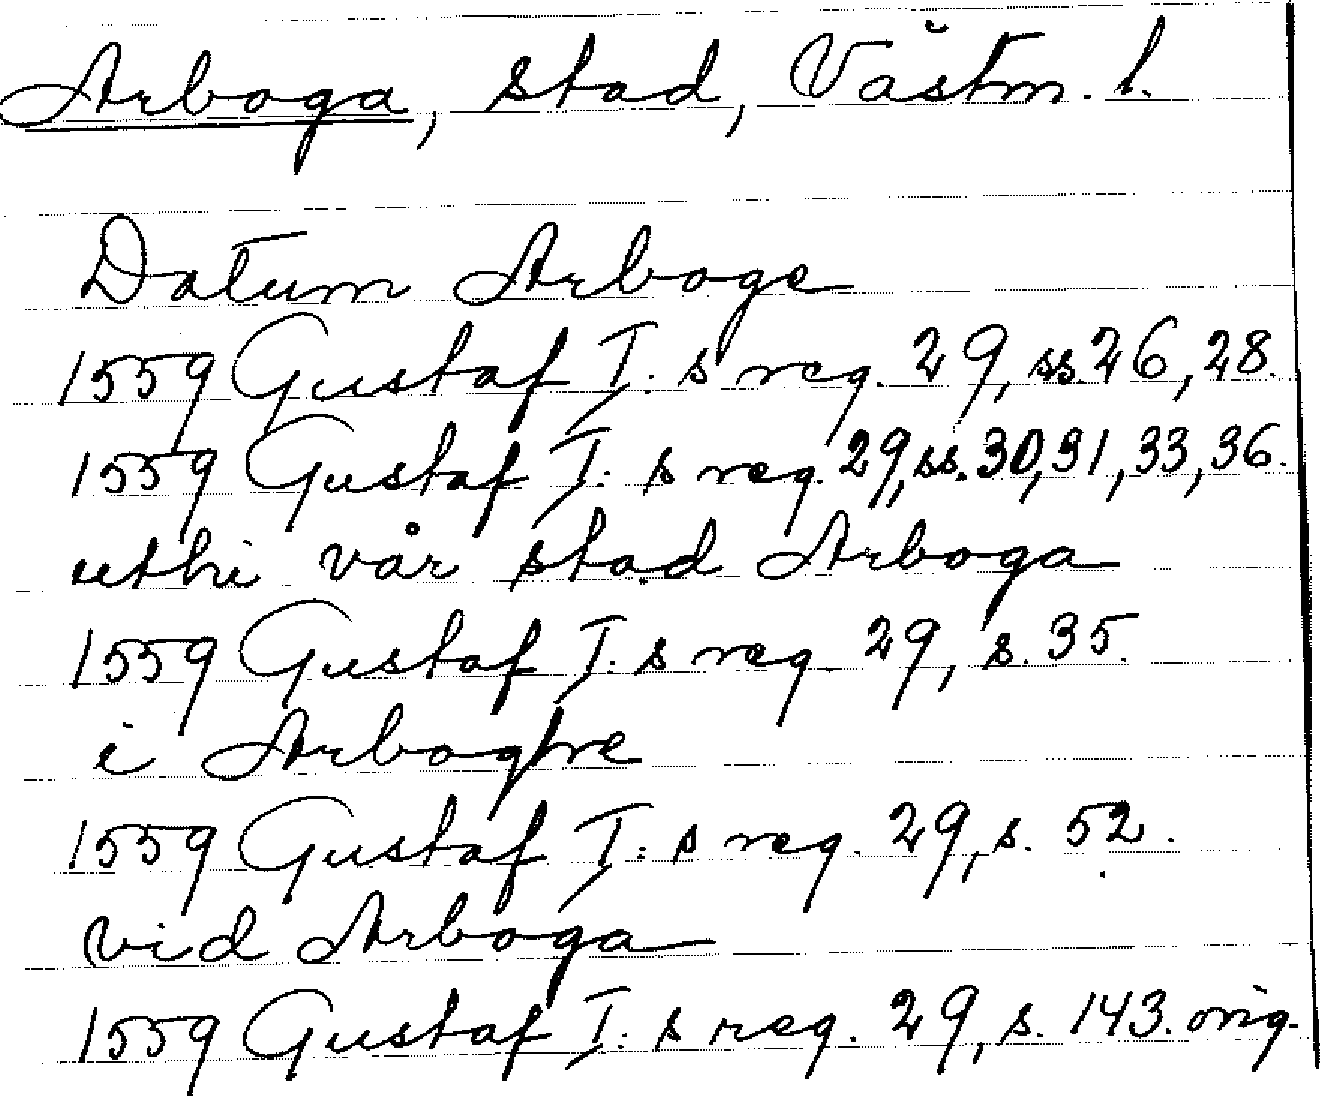 Arboga, stad, Västm. l.
Datum Arboge
1559 Gustaf I: s reg. 29, ss. 26, 28.
1559 Gustaf I: s reg. 29, ss. 30, 31, 33, 36.
uthi vår stad Arboga
1559 Gustaf I: s reg. 29, s. 35.
i Arboghe
1559 Gustaf I: s reg. 29, s. 52.
vid Arboga
1559 Gustaf I: s reg. 29, s. 143. orig.